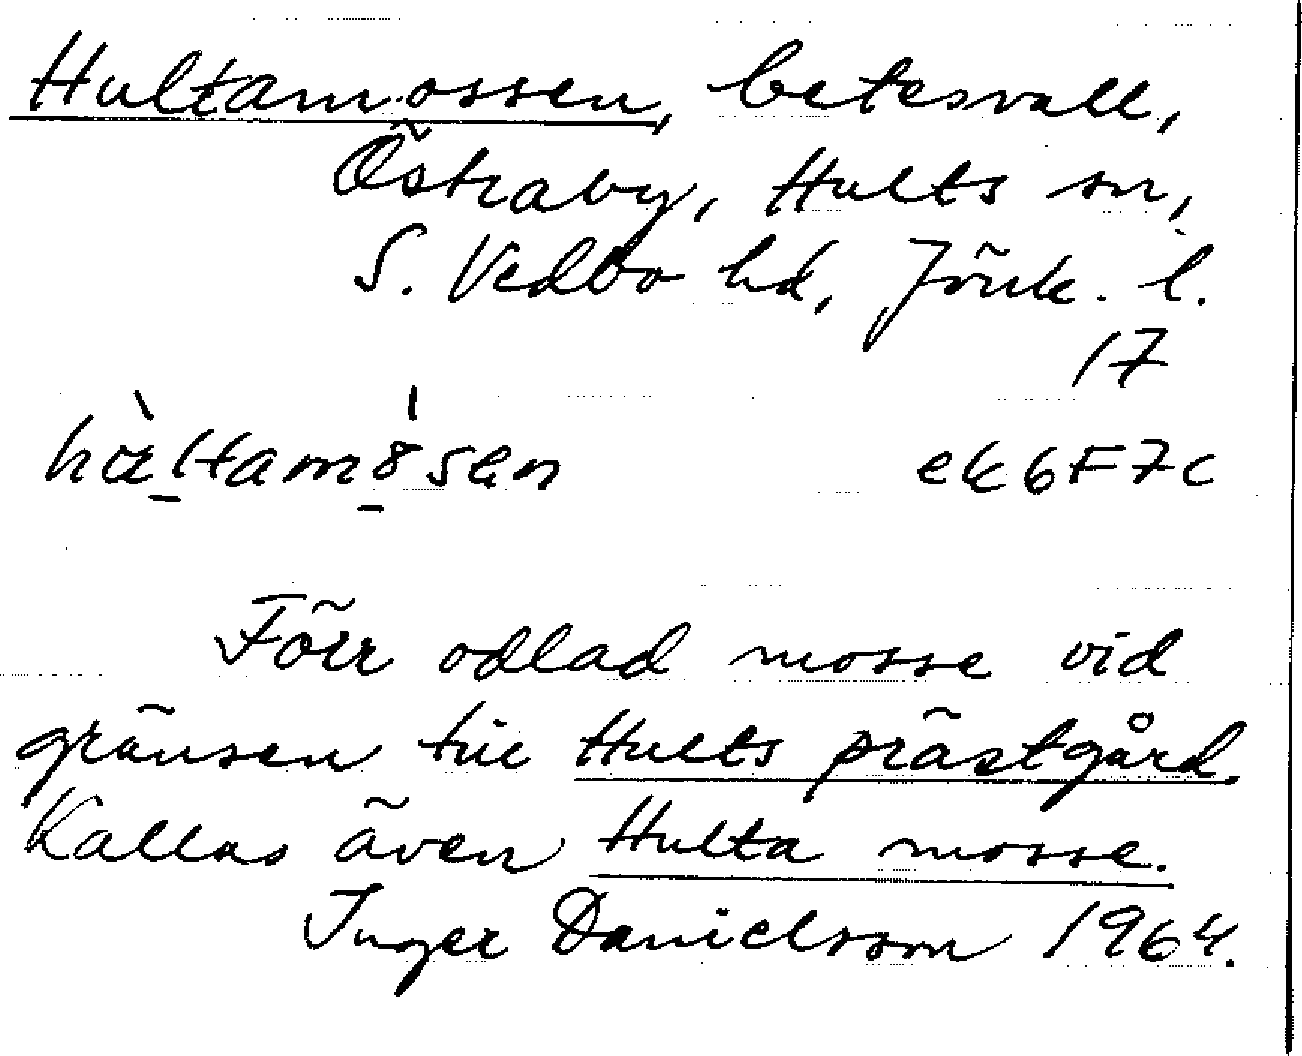 Hultamossen, betesvall,
Östraby, Hults sn,
S. Vedbo hd, Jönk. l.
17
ek 6F7c
Förr odlad mosse vid
gränsen till Hults prästgård.
Kallas även Hulta mosse.
Inger Danielsson 1964.